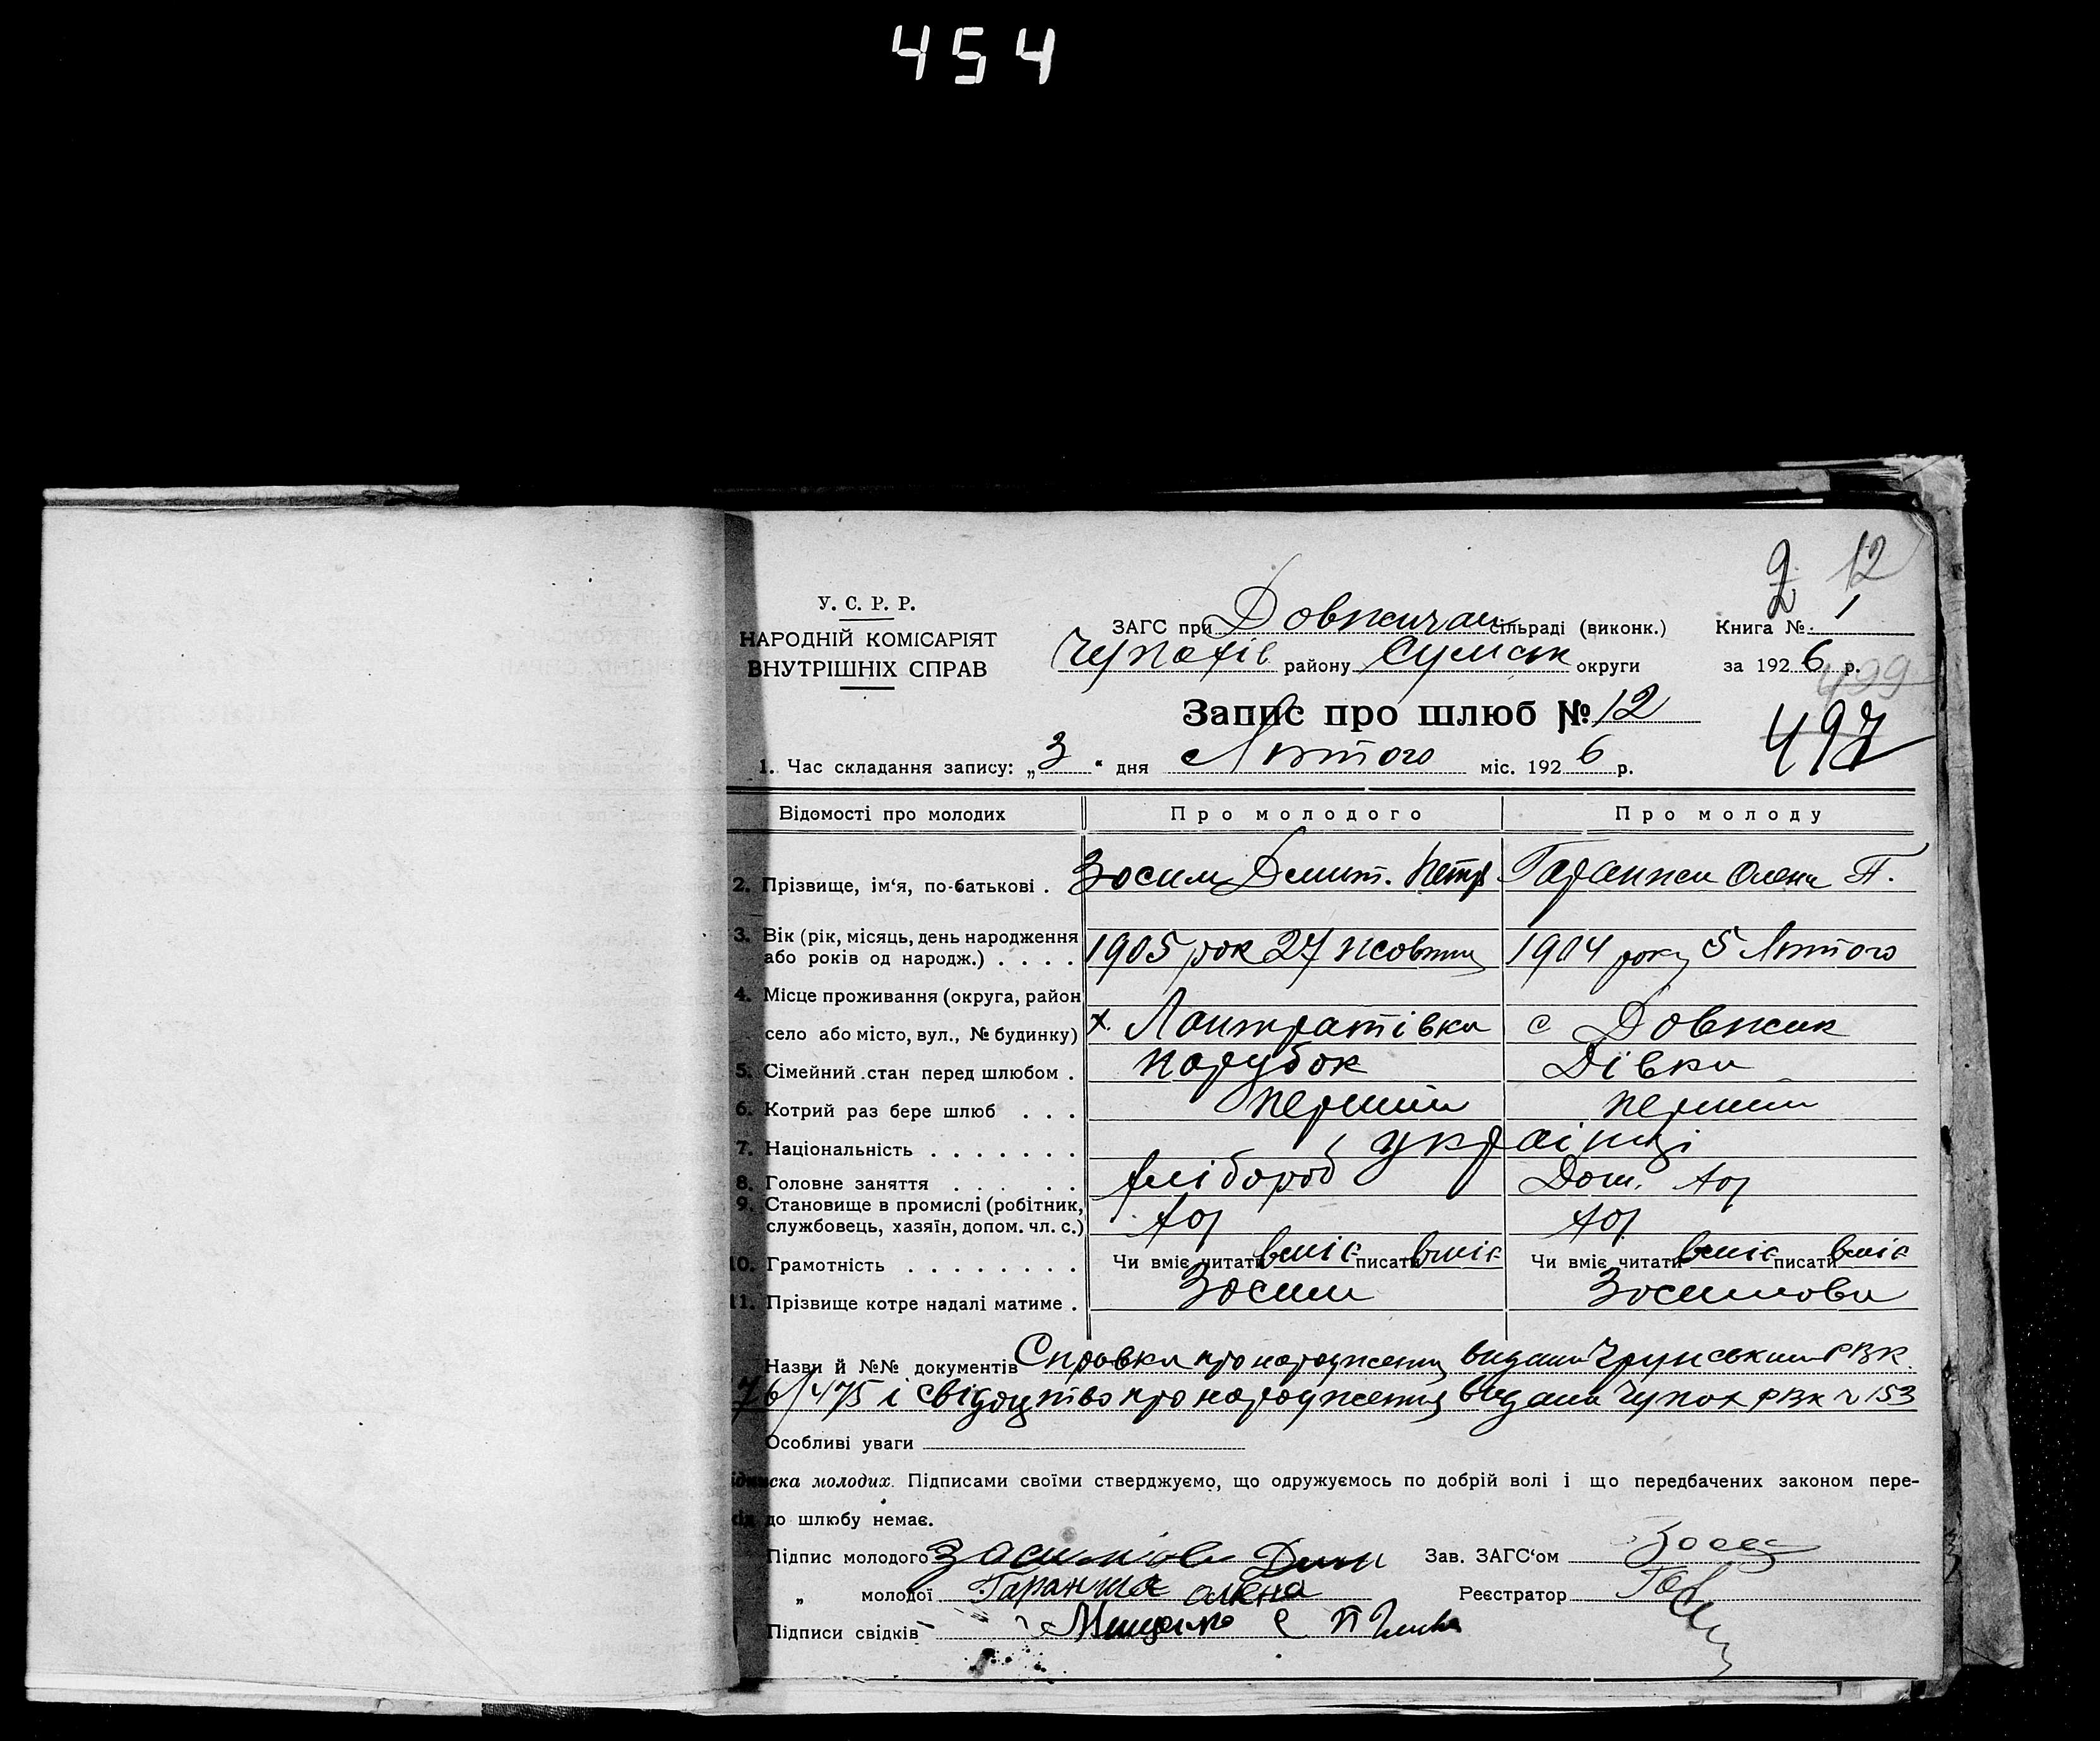 454
2 12
У. С. Р. Р.
НАРОДНІЙ КОМІСАРІЯТ
ВНУТРІШНІХ СПРАВ
ЗАГС при Довжичан сільраді (виконк.) Книга № 1
Чупахів району Сумськ округи за 1926 р.
499
Запис про шлюб № 12
497
1. Час складання запису: „3“ дня Лютого міс. 1926 р.
Відомості про молодих Про молодого Про молоду
2. Прізвище, ім‘я, по-батькові . Зосим Дмит. Петр Гаранжа Олена П.
3. Вік (рік, місяць, день народження
або років од народж.) . . . . 1905 рок 27 жовтня 1904 року 5 Лютого
4. Місце проживання (округа, район
село або місто, вул., № будинку) х. Лантратівка с Довжик
5. Сімейний стан перед шлюбом . парубок Дівка
6. Котрий раз бере шлюб . . . перший перший
7. Національність . . . . . . . українці
8. Головне заняття . . . . . хлібороб Дом.
9. Становище в промислі (робітник,
службовець, хазяїн, допом. чл. с.)
10. Грамотність . . . . . . . . Чи вміє читати вміє писати вміє Чи вміє читати вміє писати вміє
11. Прізвище котре надалі матиме . Зосим Зосимова
Назви й №№ документів Справка про народження видана Грунським РВК
76/475 і свідоцтво про народження видана Чупах РВК № 153
Особливі уваги
ідписка молодих. Підписами своїми стверджуємо, що одружуємось по добрій волі і що передбачених законом пере-
до шлюбу немає.
Підпис молодого Засимов Дми Зав. ЗАГС‘ом
„ молодої Гаранжа олена Реєстратор
Підписи свідків